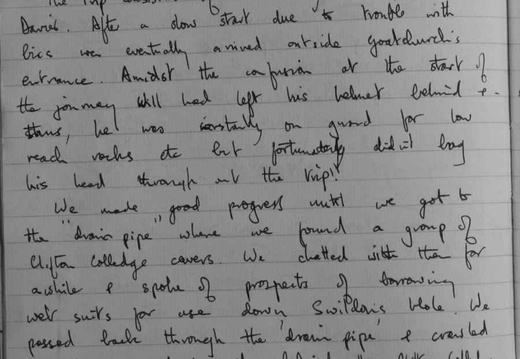 The trip
David. After a slow start due to trouble with
bics we eventually arrived outside goatchurch's
entrance. Amidst the confusion at the start of
the journey Will had left his helmet behind &
thus, he was constantly on guard for low
reach rocks etc but fortunately did'nt bag
his head through out the trip!!
We made good progress until we got to
the "drain pipe" where we found a group of
Clifton Colledge cavers. We chatted with them for
awhile & spoke of prospects of borrowing
wet suits for use down Swildons Hole. We
passed back through the 'drain pipe' & crawled